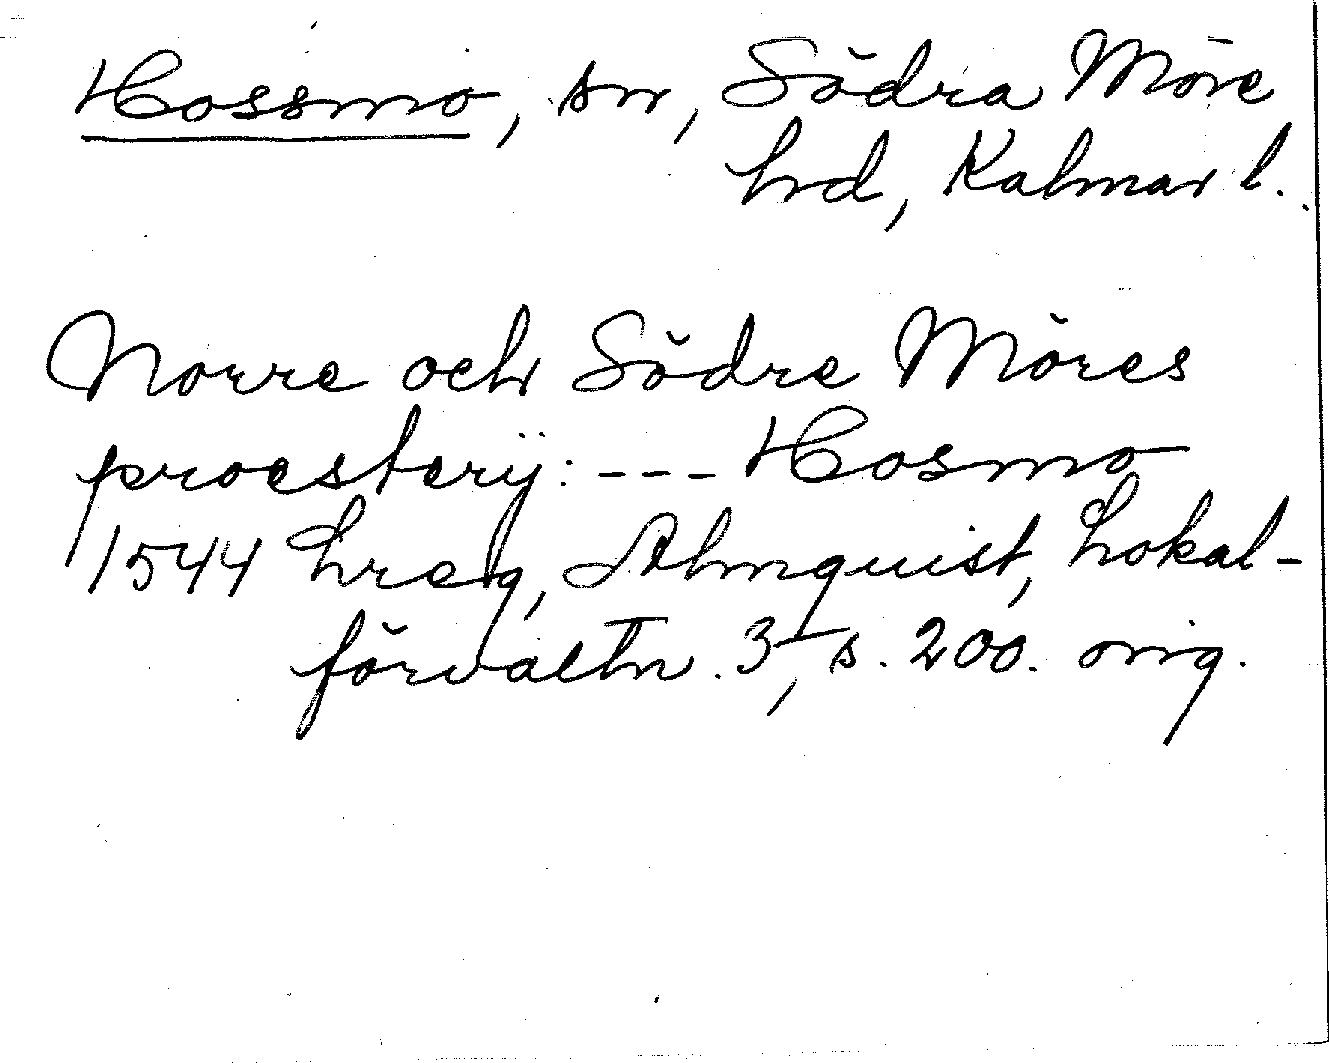 Hossmo, sn, Södra Möre
hrd, Kalmar l.
Norre och Södre Möres
proesterij: --- Hosmo
1544 hreg, Almquist, Lokal-
förvaltn. 3, s. 200. orig.